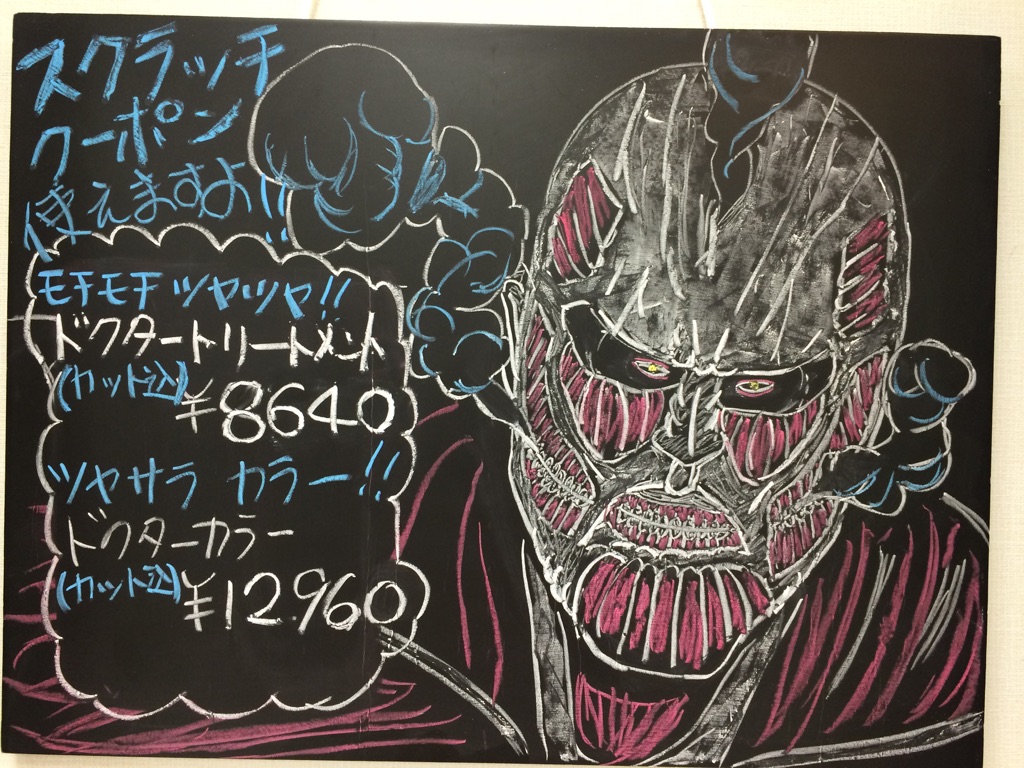 スクラッチ
クーポン
使えますよ!!
モチモチ ツヤツヤ!!
ドクタートリートメント
(カット込)
¥8640
ツヤサラ カラー!!
ドクターカラー
(カット込)
¥12960